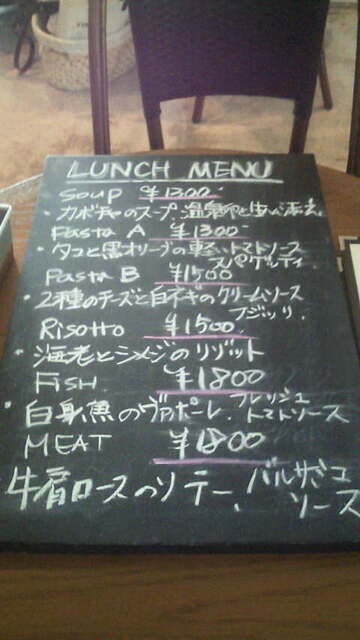 LUNCH MENU
Soup ¥1300
・カボチャのスープ 温泉卵と生ハム添え
Pasta A ¥1300
・タコと黒オリーブの軽いトマトソース
スパゲッティ
Pasta B ¥1500
・2種のチーズと白ネギのクリームソース
フジッリ
Risotto ¥1500
・海老とシメジのリゾット
FISH ¥1800
・白身魚のヴァポーレ、フレッシュ
トマトソース
MEAT ¥1800
牛肩ロースのソテー、バルサミコ
ソース